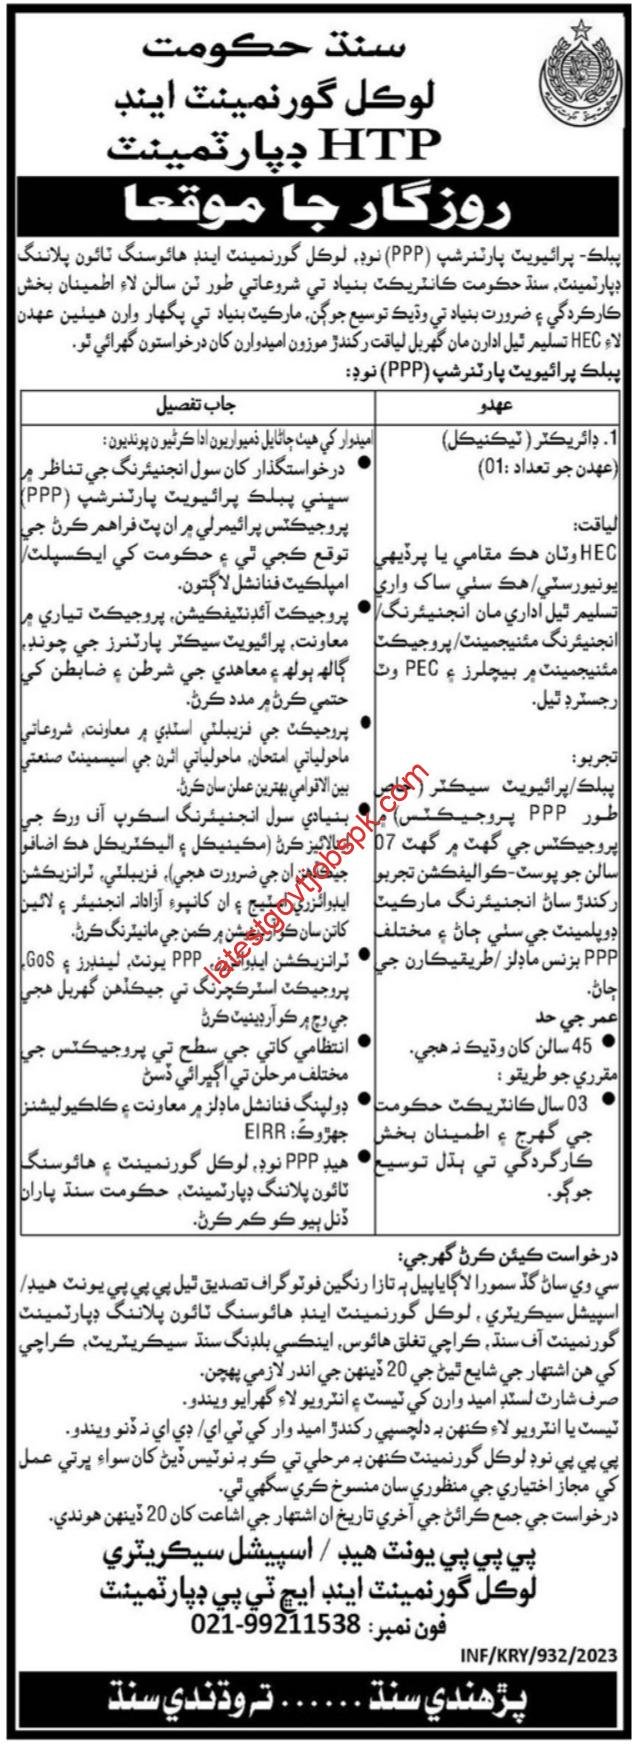 سنڌ حڪومت
لوڪل گورنمينٽ اينڊ
HTP ڊپارٽمينٽ
روزگار جا موقعا
پبلڪ- پرائيويٽ پارٽنرشپ (PPP) نوڊ، لوڪل گورنمينٽ اينڊ هائوسنگ ٽائون پلاننگ
ڊپارٽمينٽ، سنڌ حڪومت ڪانٽريڪٽ بنياد تي شروعاتي طور ٽن سالن لاءِ اطمينان بخش
ڪارڪردگي ۽ ضرورت بنياد تي وڌيڪ توسيع جوڳن، مارڪيٽ بنياد تي پگهار وارن هيٺين عهدن
لاءِ HEC تسليم ٿيل ادارن مان گهربل لياقت رکندڙ موزون اميدوارن کان درخواستون گهرائي ٿو.
پبلڪ پرائيويٽ پارٽنرشپ (PPP) نوڊ:
عهدو
1. ڊائريڪٽر (ٽيڪنيڪل)
(عهدن جو تعداد :01)
لياقت:
HEC وٽان هڪ مقامي يا پرڏيهي
يونيورسٽي/هڪ سٺي ساک واري
تسليم ٿيل اداري مان انجنيئرنگ/
انجنيئرنگ مئنيجمينٽ/پروجيڪٽ
مئنيجمينٽ ۾ بيچلرز ۽ PEC وٽ
رجسٽرڊ ٿيل.
تجربو:
پبلڪ/پرائيويٽ سيڪٽر (خاص
طور PPP پروجيڪٽس) ۾
پروجيڪٽس جي گهٽ ۾ گهٽ 07
سالن جو پوسٽ-ڪواليفڪشن تجربو
رکندڙ ساڻ انجنيئرنگ مارڪيٽ
ڊولپمينٽ جي سٺي ڄاڻ ۽ مختلف
PPP بزنس ماڊلز/طريقيڪارن جي
ڄاڻ.
عمر جي حد
● 45 سالن کان وڌيڪ نه هجي.
مقرري جو طريقو:
● 03 سال ڪانٽريڪٽ حڪومت
جي گهرج ۽ اطمينان بخش
ڪارگردگي تي ٻڌل توسيع
جوڳو.
جاب تفصيل
اميدوار کي هيٺ ڄاڻايل ذميواريون ادا ڪرڻيون پونديون:
● درخواستگذار کان سول انجنيئرنگ جي تناظر ۾
سڀني پبلڪ پرائيويٽ پارٽنرشپ (PPP)
پروجيڪٽس پرائيمرلي ۾ ان پٽ فراهم ڪرڻ جي
توقع ڪجي ٿي ۽ حڪومت کي ايڪسپلٽ/
امپلڪيٽ فنانشل لاڳتون.
● پروجيڪٽ آئڊنٽيفڪيشن، پروجيڪٽ تياري ۾
معاونت، پرائيويٽ سيڪٽر پارٽنرز جي چونڊ،
ڳالهه ٻولهه ۽ معاهدي جي شرطن ۽ ضابطن کي
حتمي ڪرڻ ۾ مدد ڪرڻ.
● پروجيڪٽ جي فزيبلٽي اسٽڊي ۾ معاونت، شروعاتي
ماحولياتي امتحان، ماحولياتي اثرن جي اسيسمينٽ صنعتي
بين الاقوامي بهترين عملن سان ڪرڻ.
● بنيادي سول انجنيئرنگ اسڪوپ آف ورڪ جي
ڪرڻ (مڪينيڪل ۽ اليڪٽريڪل هڪ اضافو
ان جي ضرورت هجي)، فزيبلٽي، ٽرانزيڪشن
ايڊوائزري اسٽيج ۽ ان کانپوءِ آزادانه انجنيئر ۽ لائين
کاتن سان ڪوآرڊينيشن ۾ ڪمن جي مانيٽرنگ ڪرڻ.
● ٽرانزيڪشن PPP يونٽ، لينڊرز ۽ GoS،
پروجيڪٽ اسٽرڪچرنگ تي جيڪڏهن گهربل هجي
جي وچ ۾ ڪوآرڊينيٽ ڪرڻ
● انتظامي کاتي جي سطح تي پروجيڪٽس جي
مختلف مرحلن تي اڳڀرائي ڏسڻ
● ڊولپنگ فنانشل ماڊلز ۾ معاونت ۽ ڪلڪيوليشنز
جهڙوڪ: EIRR
● هيڊ PPP نوڊ، لوڪل گورنمينٽ ۽ هائوسنگ
ٽائون پلاننگ ڊپارٽمينٽ، حڪومت سنڌ پاران
ڏنل ٻيو ڪو ڪم ڪرڻ.
latestgovtjobspk.com
درخواست ڪيئن ڪرڻ گهرجي:
سي وي ساڻ گڏ سمورا لاڳاپيل ٻه تازا رنگين فوٽو گراف تصديق ٿيل پي پي پي يونٽ هيڊ/
اسپيشل سيڪريٽري، لوڪل گورنمينٽ اينڊ هائوسنگ ٽائون پلاننگ ڊپارٽمينٽ
گورنمينٽ آف سنڌ، ڪراچي تغلق هائوس، اينڪسي بلڊنگ سنڌ سيڪريٽريٽ، ڪراچي
کي هن اشتهار جي شايع ٿيڻ جي 20 ڏينهن جي اندر لازمي پهچن.
صرف شارٽ لسٽڊ اميدوارن کي ٽيسٽ ۽ انٽرويو لاءِ گهرايو ويندو.
ٽيسٽ يا انٽرويو لاءِ ڪنهن به دلچسپي رکندڙ اميدوار کي ٽي اي/ ڊي اي نه ڏنو ويندو.
پي پي پي نوڊ لوڪل گورنمينٽ ڪنهن به مرحلي تي ڪو به نوٽيس ڏيڻ کان سواءِ ڀرتي عمل
کي مجاز اختياري جي منظوري سان منسوخ ڪري سگهي ٿي.
درخواست جي جمع ڪرائڻ جي آخري تاريخ ان اشتهار جي اشاعت کان 20 ڏينهن هوندي.
پي پي پي يونٽ هيڊ / اسپيشل سيڪريٽري
لوڪل گورنمينٽ اينڊ ايڇ ٽي پي ڊپارٽمينٽ
فون نمبر: 021-99211538
INF/KRY/932/2023
پڙهندي سنڌ ...... ته وڌندي سنڌ